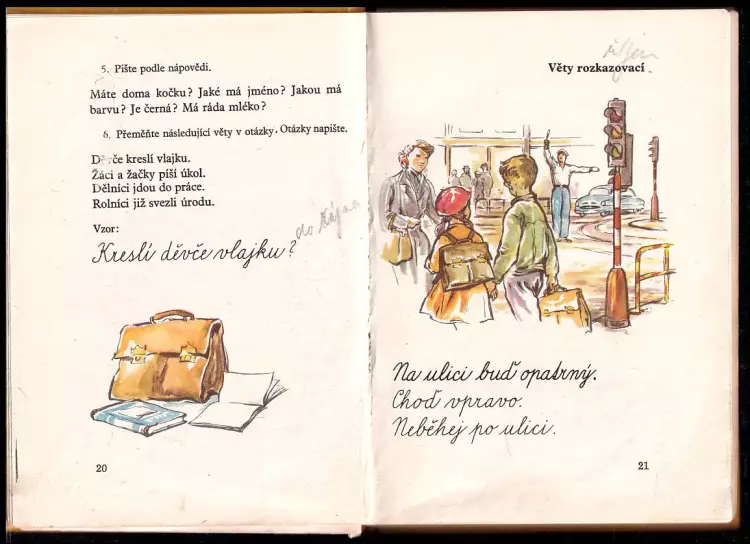 5. Pište podle nápovědi.
Máte doma kočku? Jaké má jméno? Jakou má
barvu? Je černá? Má ráda mléko?
6. Přeměňte následující věty v otázky. Otázky napište.
Děvče kreslí vlajku.
Žáci a žačky píší úkol.
Dělníci jdou do práce.
Rolníci již svezli úrodu.
Vzor:
Kreslí děvče vlajku?
20
Věty rozkazovací
Na ulici buď opatrný.
Choď vpravo.
Neběhej po ulici.
21